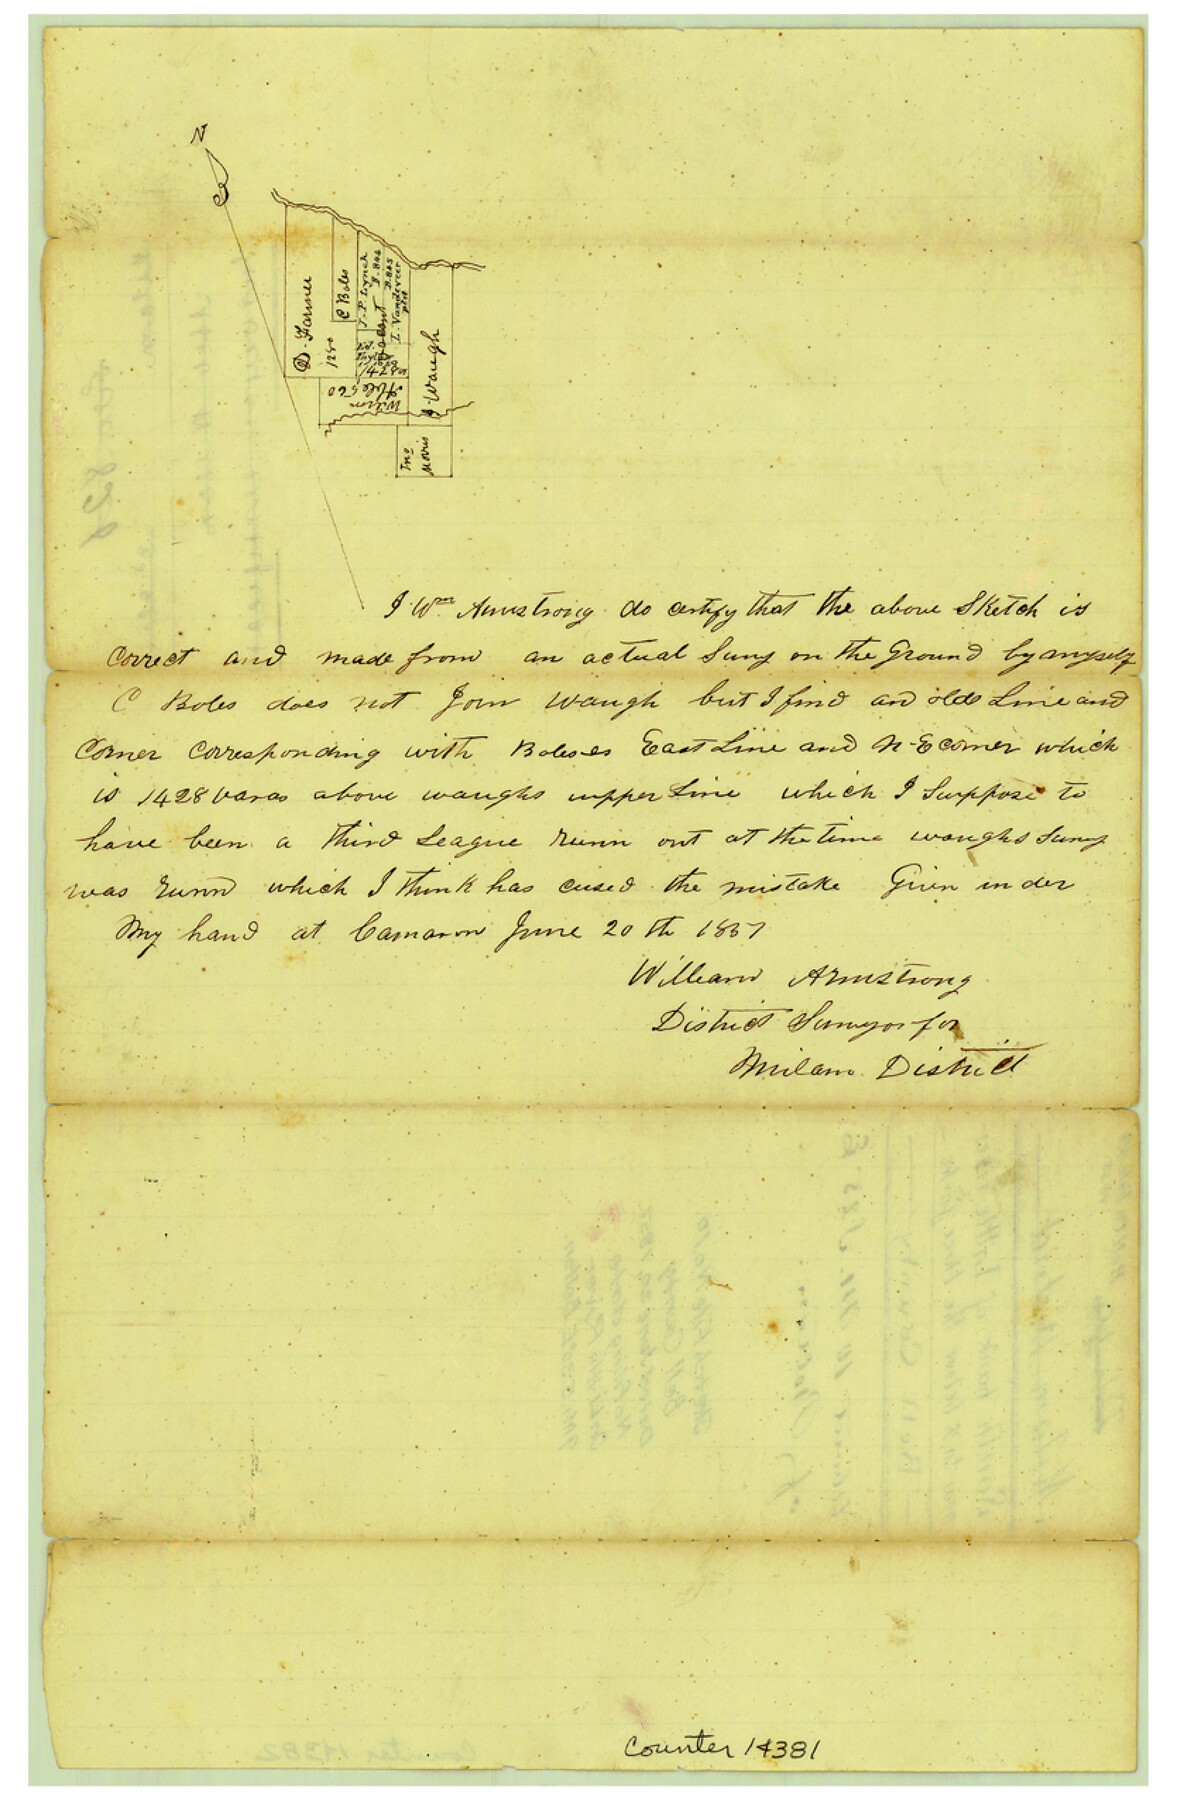 N
D. Farmer
1280
C Boles
J. P. Lynch
B. 846
B. 845
I. Vanderveer
J. Waugh
Wilson
Hole 560
Jno
Moris
I Wm Armstrong do certify that the above Sketch is
Correct and made from an actual Survy on the Ground by myself
C Boles does not Join Waugh but I find an old Line and
Corner Corresponding with Boleses East Line and N-E corner which
is 1428 varas above waughs upper Line which I Suppose to
have been a third League runn out at the time waughs Survy
was runn which I think has cused the mistake Given under
My hand at Camaron June 20 th 1857
William Armstrong
District Surveyor for
Milam District
Counter 14381